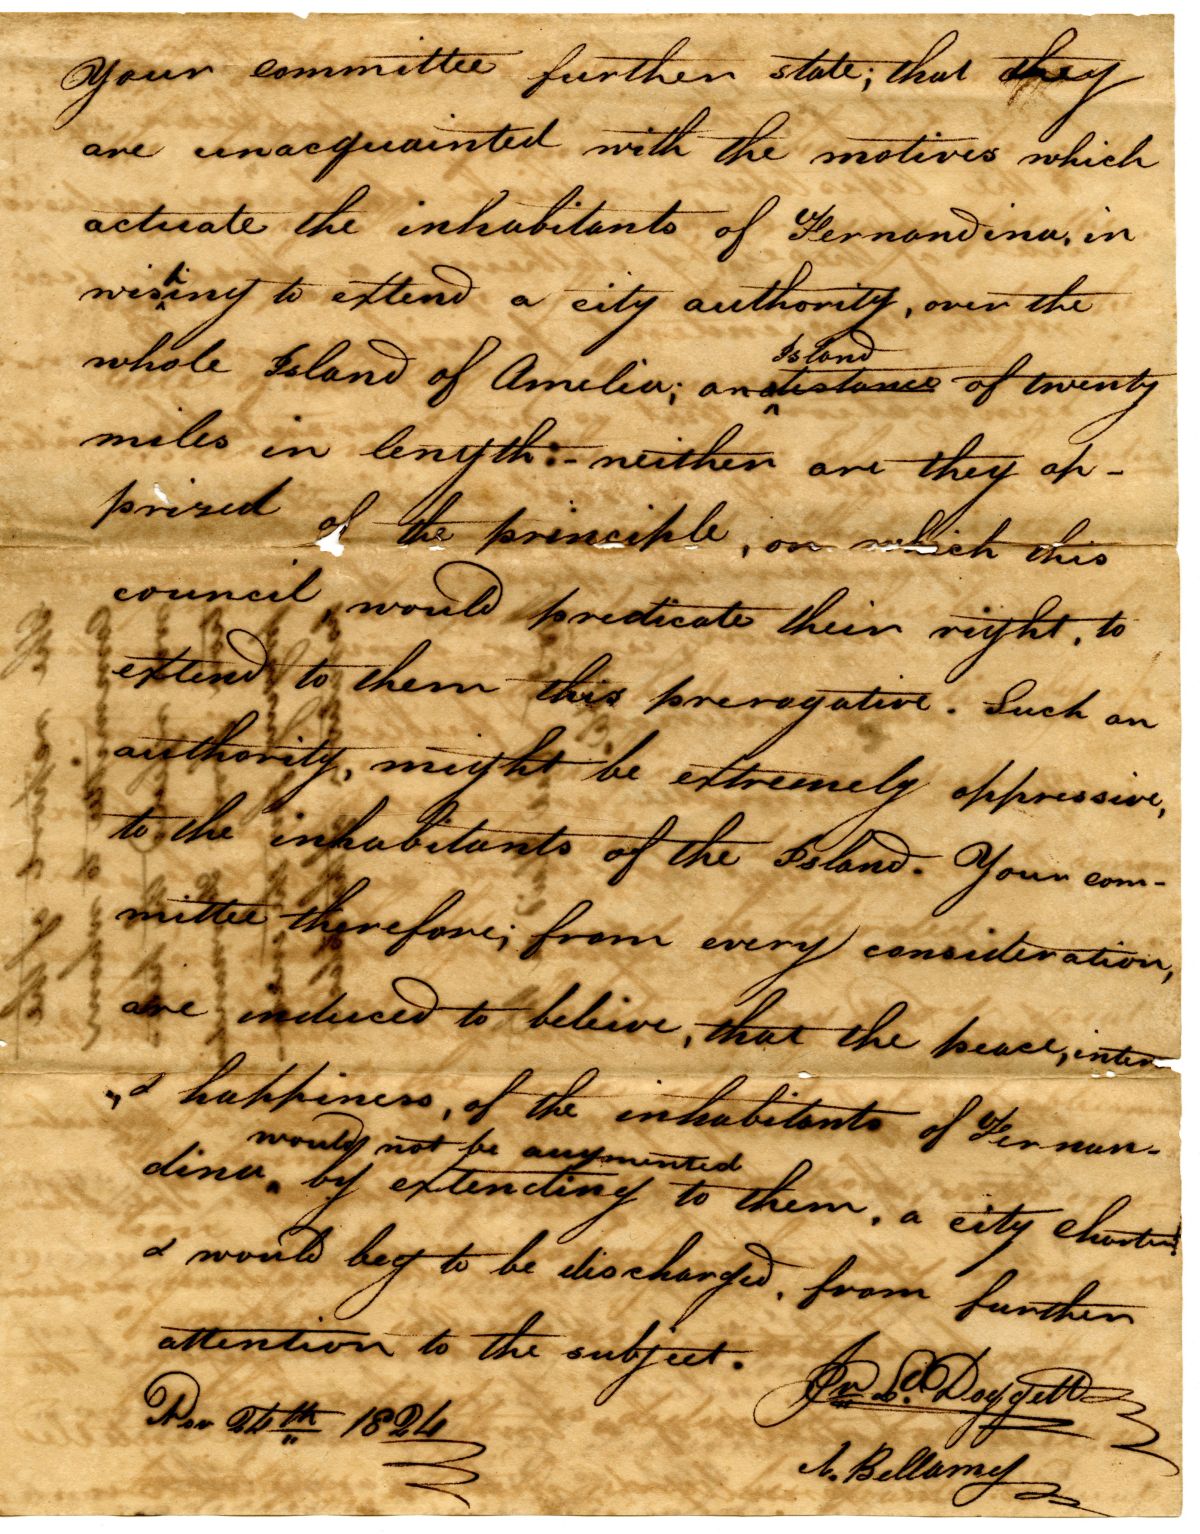 Your committee further state; that they
are unacquainted with the motives which
actuate the inhabitants of Fernandina, in
wishing to extend a city authority, over the
whole Island of Amelia; an distance Island of twenty
miles in length:- neither are they ap-
prized of the principle, on which this
council, would predicate their right, to
extend to them this prerogative. Such an
authority, might be extremely oppressive,
to the inhabitants of the Island. Your com-
mittee therefore; from every consideration,
are induced to beleive, that the peace, inter
& happiness, of the inhabitants of Fernan-
would not be augmented
dina by extending to them, a city charter!
& would beg to be discharged, from further
attention to the subject.
Jn L. Doggett
Nov 24th 1824
A. Bellamy